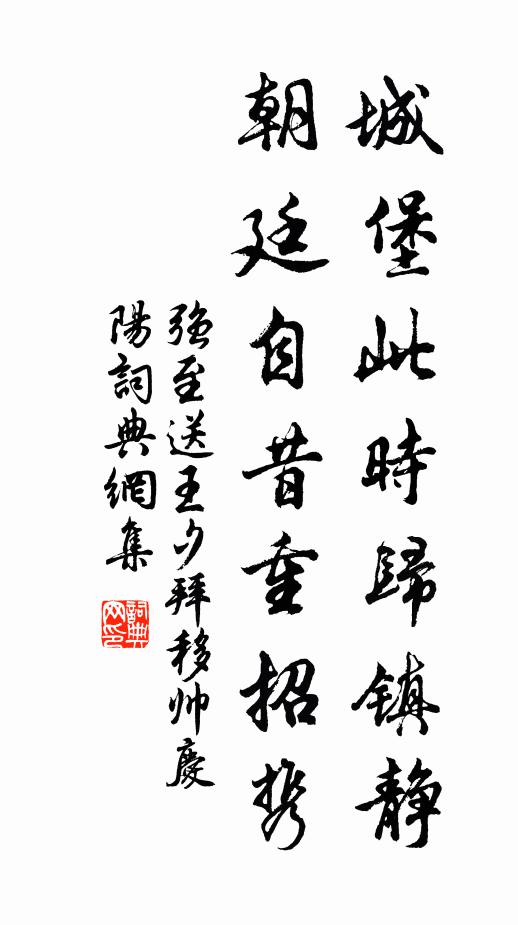 城堡此時歸鎮静
朝廷自昔重招携
强至送王少拜移帅慶
陽詞典網集
詞典网印